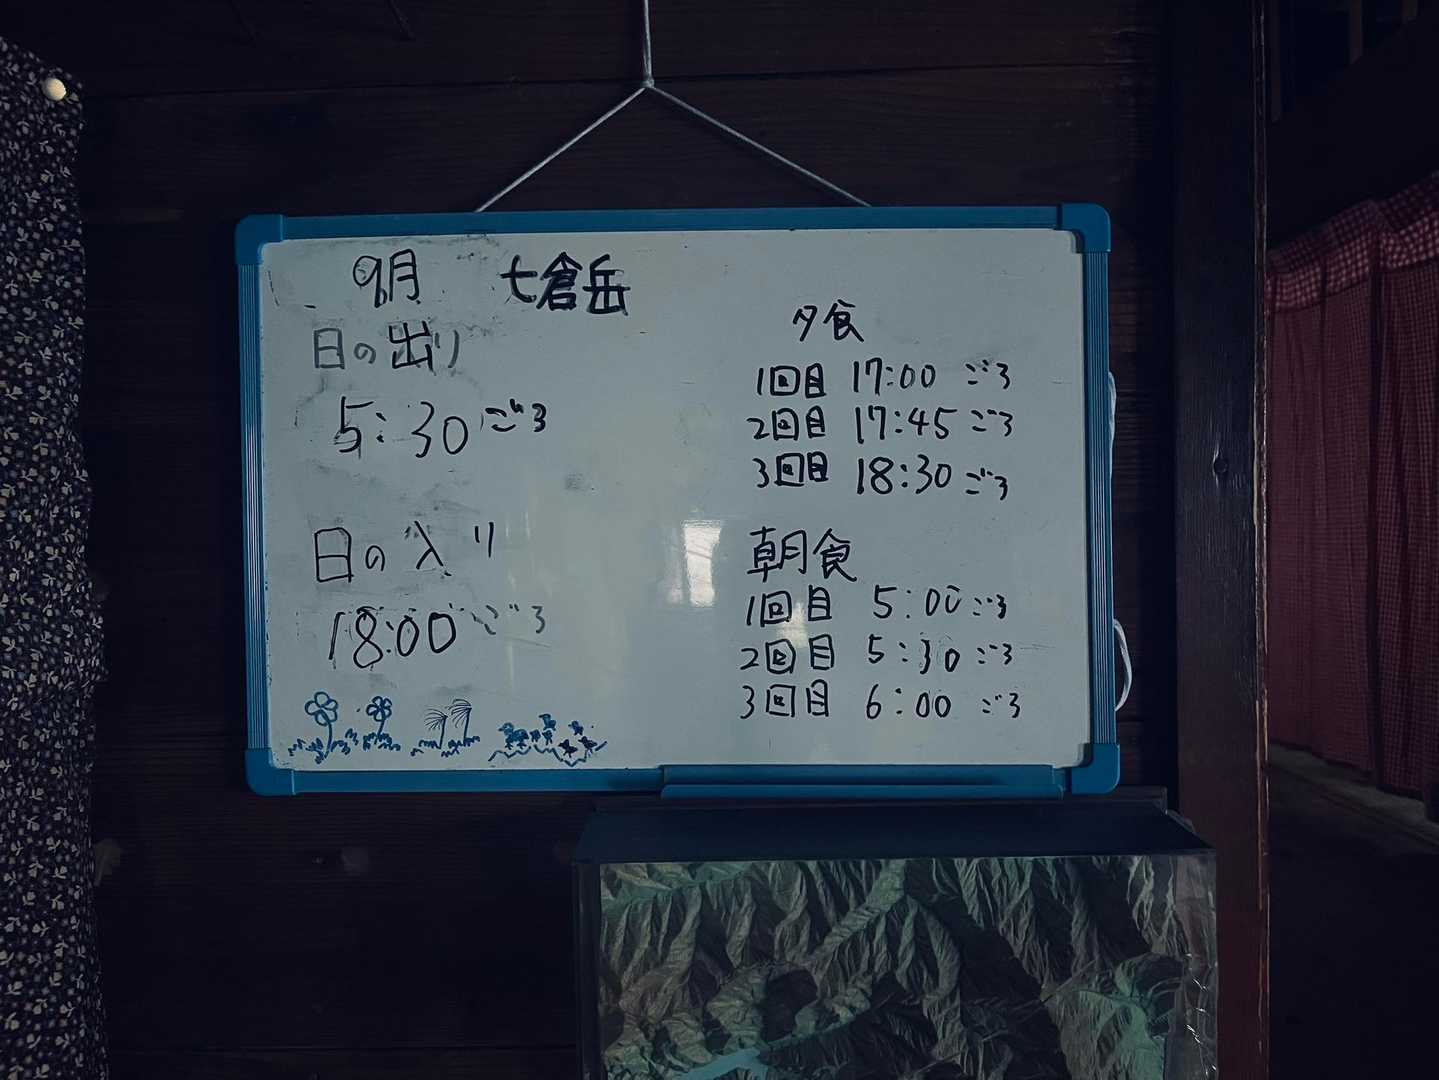 9月 七倉岳
日の出り
5:30ごろ
日の入り
18:00ごろ
夕食
1回目 17:00 ごろ
2回目 17:45 ごろ
3回目 18:30 ごろ
朝食
1回目 5:00 ごろ
2回目 5:30 ごろ
3回目 6:00 ごろ